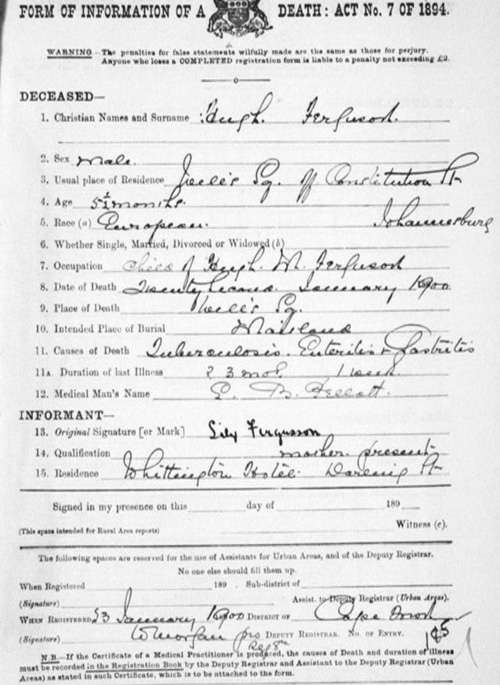 FORM OF INFORMATION OF A DEATH: ACT No. 7 OF 1894.
WARNING.—The penalties for false statements wilfully made are the same as those for perjury.
Anyone who loses a COMPLETED registration form is liable to a penalty not exceeding £2.
DECEASED—
1. Christian Names and Surname Hugh Ferguson.
2. Sex Male.
3. Usual place of Residence Sq. off Constitution St
4. Age 5½ months. Johannesburg
5. Race (a) European.
6. Whether Single, Married, Divorced or Widowed (b)
7. Occupation Child of Hugh M. Ferguson
8. Date of Death Twenty second January 1900
9. Place of Death Sq.
10. Intended Place of Burial Maitland
11. Causes of Death Tuberculosis. Enteritis & Gastritis
11A. Duration of last Illness ? 3 mos. 1 week
12. Medical Man's Name
INFORMANT—
13. Original Signature [or Mark] Lily Fergusson
14. Qualification mother present
15. Residence Whittington Hotel St
Signed in my presence on this day of 189
Witness (c).
(This space intended for Rural Area reports)
The following spaces are reserved for the use of Assistants for Urban Areas, and of the Deputy Registrar.
No one else should fill them up.
When Registered 189 . Sub-district of
(Signature) Assist. to Deputy Registrar (Urban Areas).
WHEN REGISTERED 23 January 1900 DISTRICT OF Cape Town
(Signature) pro DEPUTY REGISTRAR. NO. OF ENTRY.
N.B.—If the Certificate of a Medical Practitioner is produced, the causes of Death and duration of illness
must be recorded in the Registration Book by the Deputy Registrar and Assistant to the Deputy Registrar (Urban
Areas) as stated in such Certificate, which is to be attached to the form.